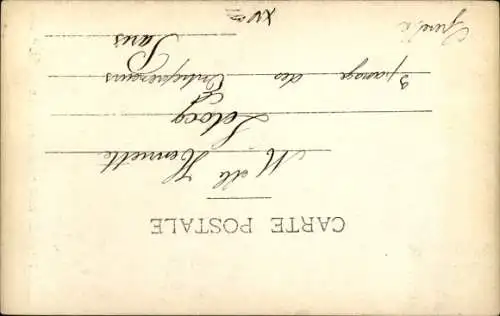 CARTE POSTALE
M elle Henriette
Leloeg
3 passage des Entrepreneurs
Paris
XV